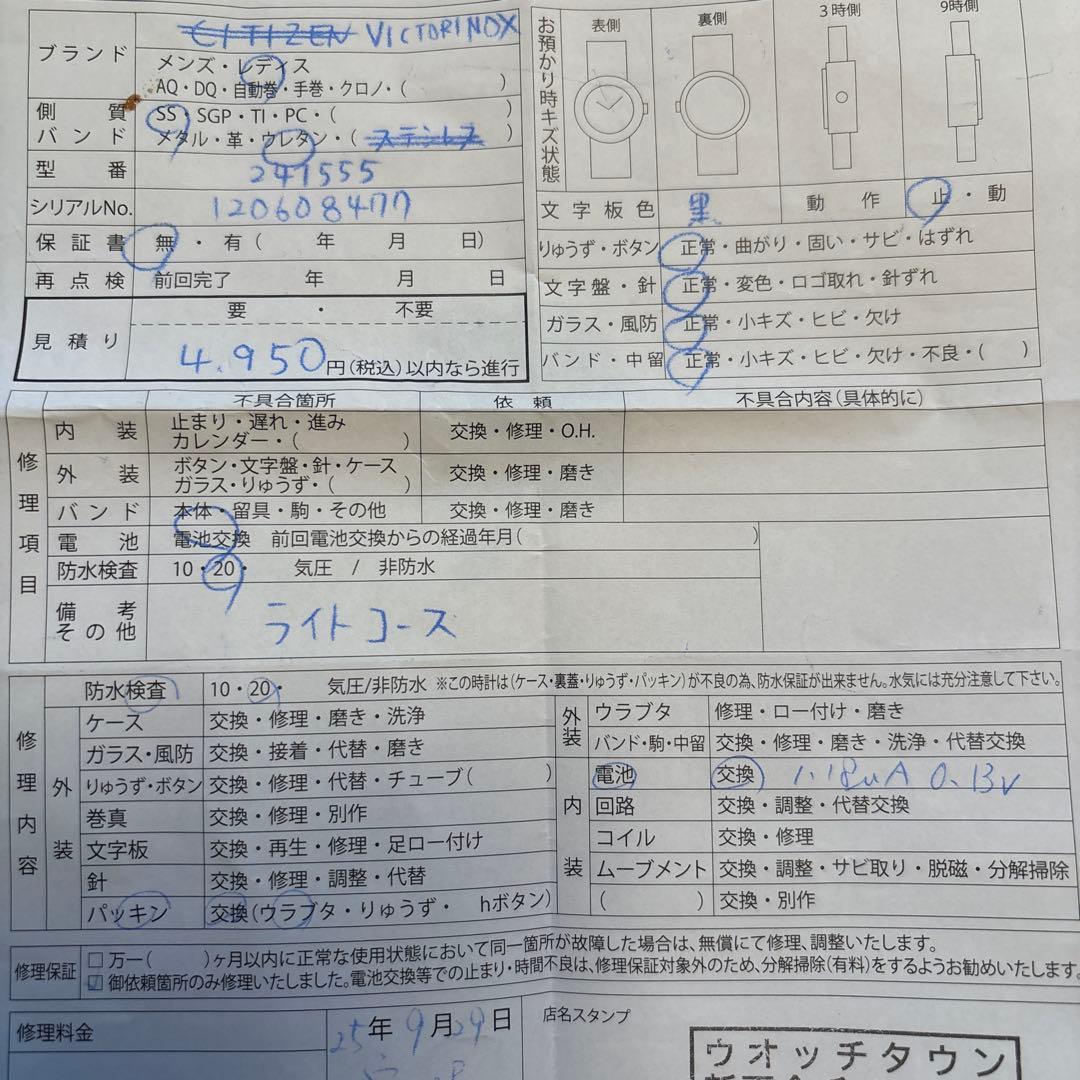 ブランド
CITIZEN VICTORINOX
メンズ・レディス
AQ・DQ・自動巻・手巻・クロノ・( )
側質 SS・SGP・TI・PC・( )
バンド メタル・革・ウレタン・( ステンレス )
型番 241555
シリアルNo. 120608477
保証書 無・有( 年 月 日)
再点検 前回完了 年 月 日
見積り 要・不要
4.950円(税込)以内なら進行
お預かり時キズ状態
表側 裏側 3時側 9時側
文字板色 黒 動作 止・動
りゅうず・ボタン 正常・曲がり・固い・サビ・はずれ
文字盤・針 正常・変色・ロゴ取れ・針ずれ
ガラス・風防 正常・小キズ・ヒビ・欠け
バンド・中留 正常・小キズ・ヒビ・欠け・不良・( )
修理項目
不具合箇所 依頼 不具合内容(具体的に)
内装 止まり・遅れ・進み
カレンダー・( ) 交換・修理・O.H.
外装 ボタン・文字盤・針・ケース
ガラス・りゅうず・( ) 交換・修理・磨き
バンド 本体・留具・駒・その他 交換・修理・磨き
電池 電池交換 前回電池交換からの経過年月( )
防水検査 10・20・ 気圧 / 非防水
備考
その他 ライトコース
修理内容
防水検査 10・20・ 気圧/非防水 ※この時計は(ケース・裏蓋・りゅうず・パッキン)が不良の為、防水保証が出来ません。水気には充分注意して下さい。
外装
ケース 交換・修理・磨き・洗浄
ガラス・風防 交換・接着・代替・磨き
りゅうず・ボタン 交換・修理・代替・チューブ( )
巻真 交換・修理・別作
文字板 交換・再生・修理・足ロー付け
針 交換・修理・調整・代替
パッキン 交換(ウラブタ・りゅうず・ hボタン)
外装
ウラブタ 修理・ロー付け・磨き
バンド・駒・中留 交換・修理・磨き・洗浄・代替交換
内装
電池 交換 1.18uA 0.13v
回路 交換・調整・代替交換
コイル 交換・修理
ムーブメント 交換・調整・サビ取り・脱磁・分解掃除
( ) 交換・別作
修理保証
□ 万一( )ヶ月以内に正常な使用状態において同一箇所が故障した場合は、無償にて修理、調整いたします。
☑ 御依頼箇所のみ修理いたしました。電池交換等での止まり・時間不良は、修理保証対象外のため、分解掃除(有料)をするようお勧めいたします。
修理料金 25年9月29日 店名スタンプ
ウオッチタウン